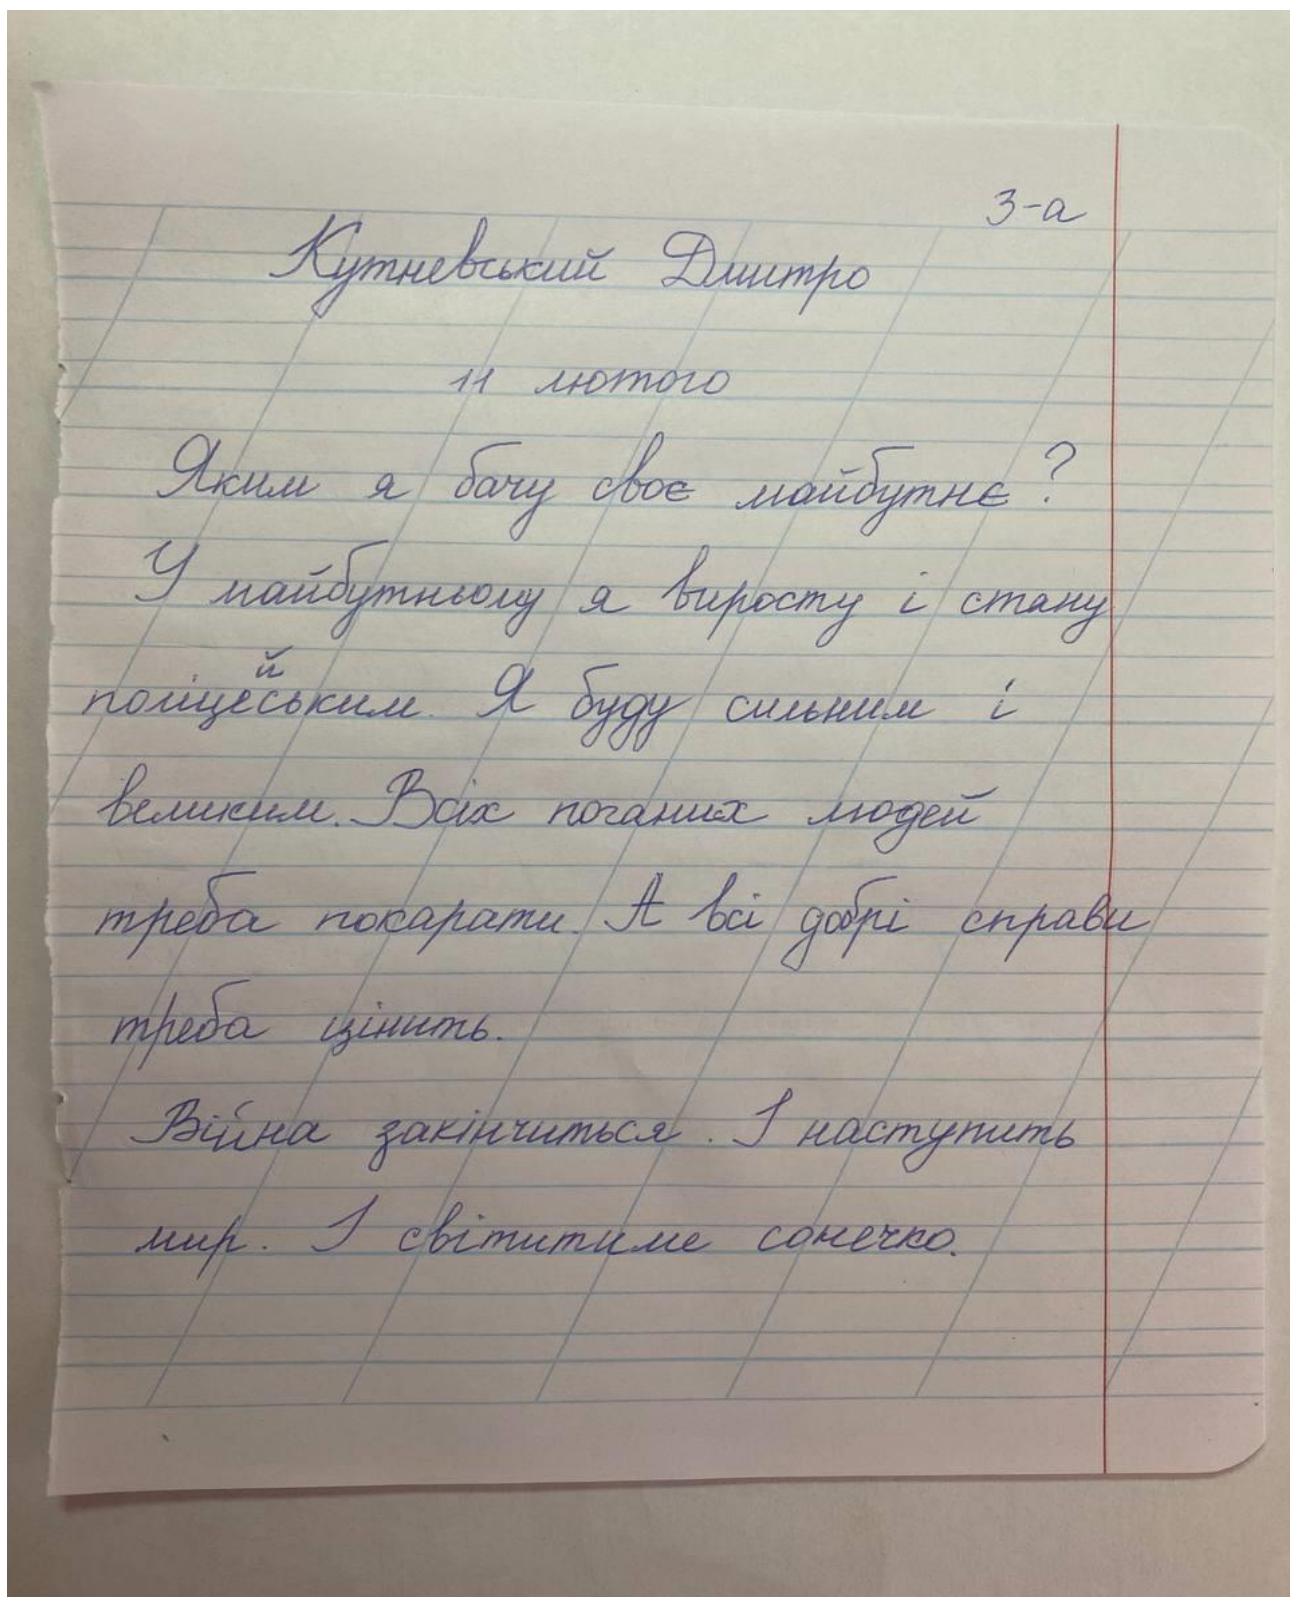 3-а
Кутневський Дмитро
11 лютого
Яким я бачу своє майбутнє?
У майбутньому я виросту і стану
поліцейським. Я буду сильним і
великим. Всіх поганих людей
треба покарати. А всі добрі справи
треба цінить.
Війна закінчиться. І наступить
мир. І світитиме сонечко.